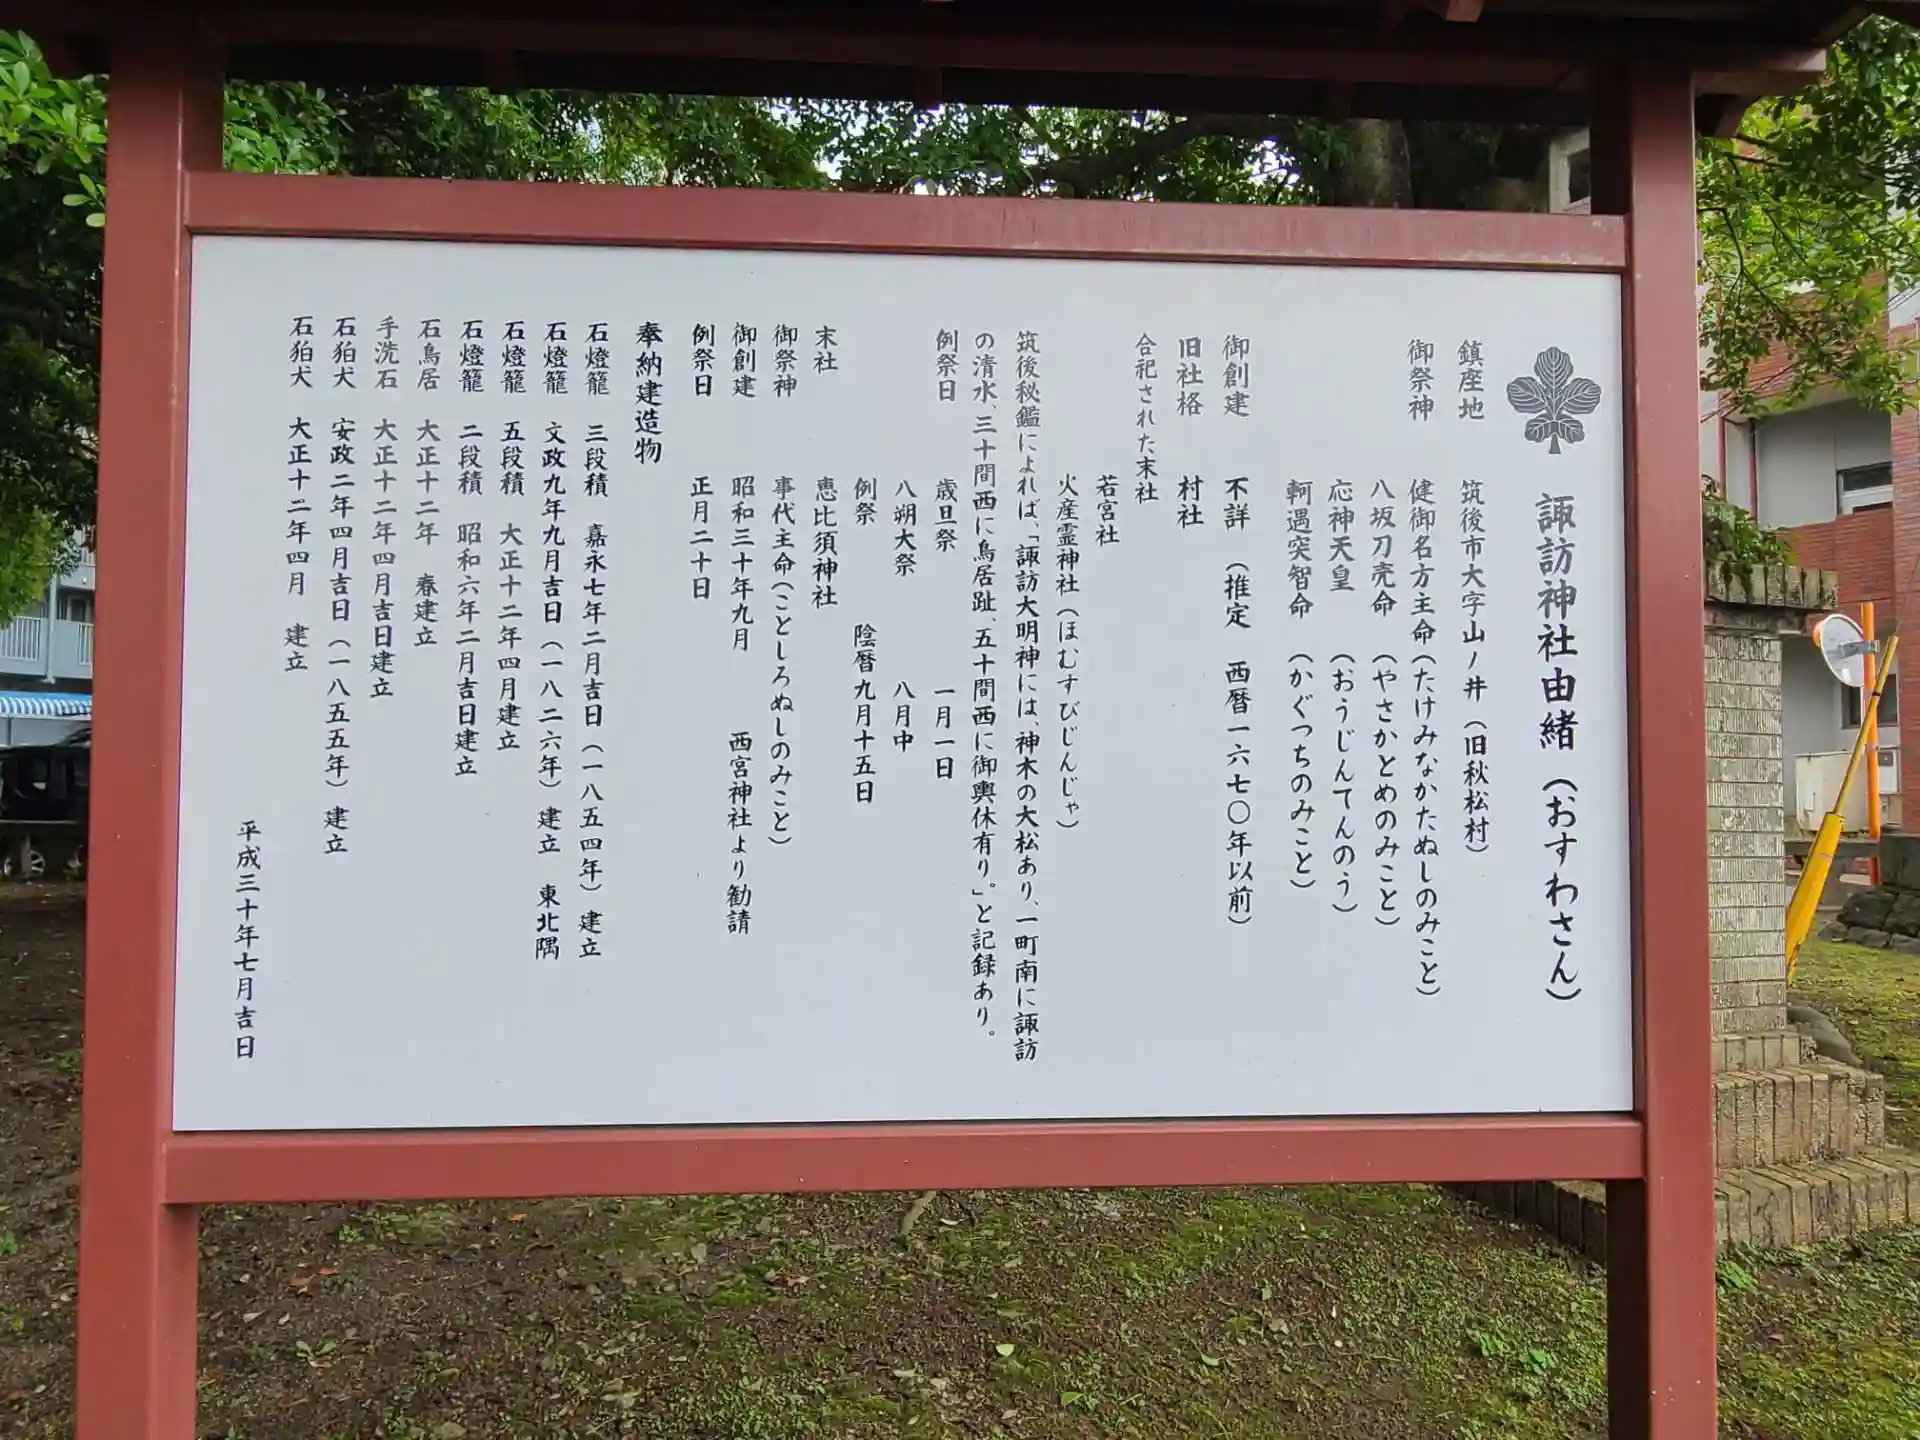 諏訪神社由緒（おすわさん）
鎮座地　筑後市大字山ノ井（旧秋松村）
御祭神　健御名方主命（たけみなかたぬしのみこと）
八坂刀売命（やさかとめのみこと）
応神天皇（おうじんてんのう）
軻遇突智命（かぐつちのみこと）
御創建　不詳（推定　西暦一六七〇年以前）
旧社格　村社
合祀された末社
若宮社
火産霊神社（ほむすびじんじゃ）
筑後秘鑑によれば、「諏訪大明神には、神木の大松あり、一町南に諏訪
の清水、三十間西に鳥居趾、五十間西に御輿休有り。」と記録あり。
例祭日　歳旦祭　一月一日
八朔大祭　八月中
例祭　陰暦九月十五日
末社　恵比須神社
御祭神　事代主命（ことしろぬしのみこと）
御創建　昭和三十年九月　西宮神社より勧請
例祭日　正月二十日
奉納建造物
石燈籠　三段積　嘉永七年二月吉日（一八五四年）建立
石燈籠　文政九年九月吉日（一八二六年）建立　東北隅
石燈籠　五段積　大正十二年四月建立
石燈籠　二段積　昭和六年二月吉日建立
石鳥居　大正十二年　春建立
手洗石　大正十二年四月吉日建立
石狛犬　安政二年四月吉日（一八五五年）建立
石狛犬　大正十二年四月　建立
平成三十年七月吉日